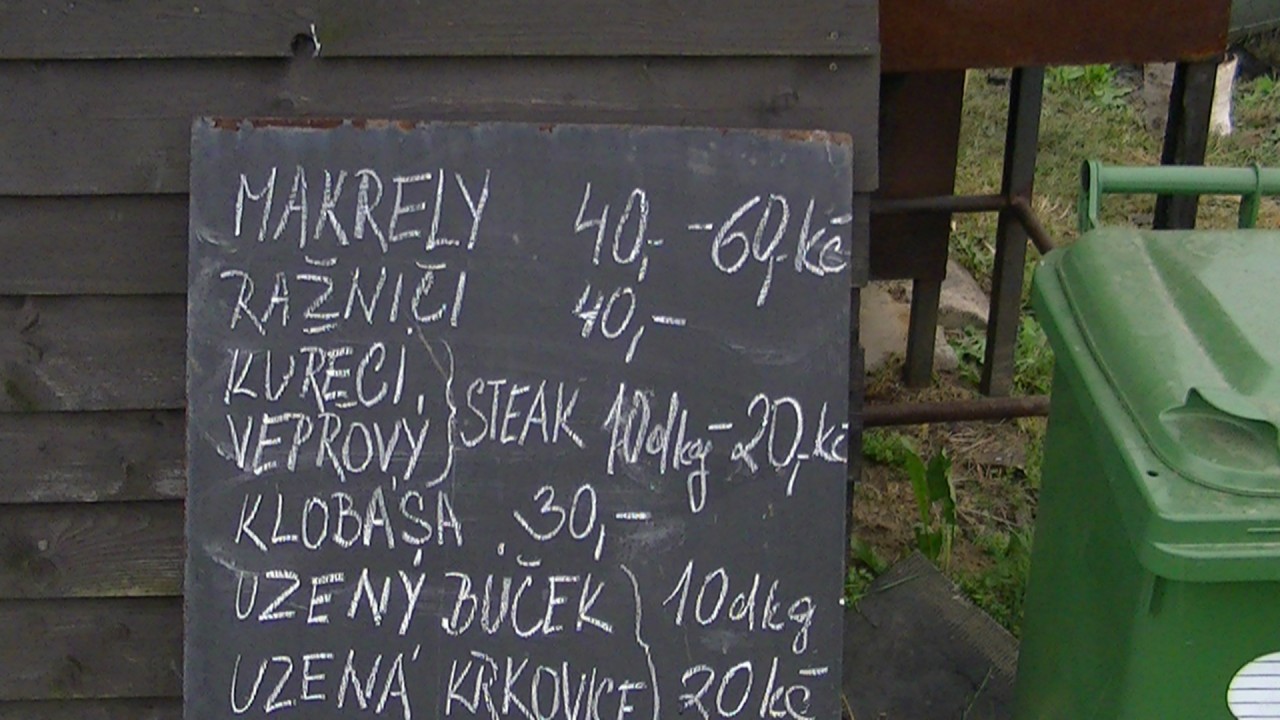 MAKRELY 40,- -60,-kč
RAŽNIČI 40,-
KUŘECÍ,
VEPŘOVÝ } STEAK 10dkg-20,-kč
KLOBÁSA 30,-
UZENÝ BŮČEK } 10dkg
UZENÁ KRKOVICE } 20kč